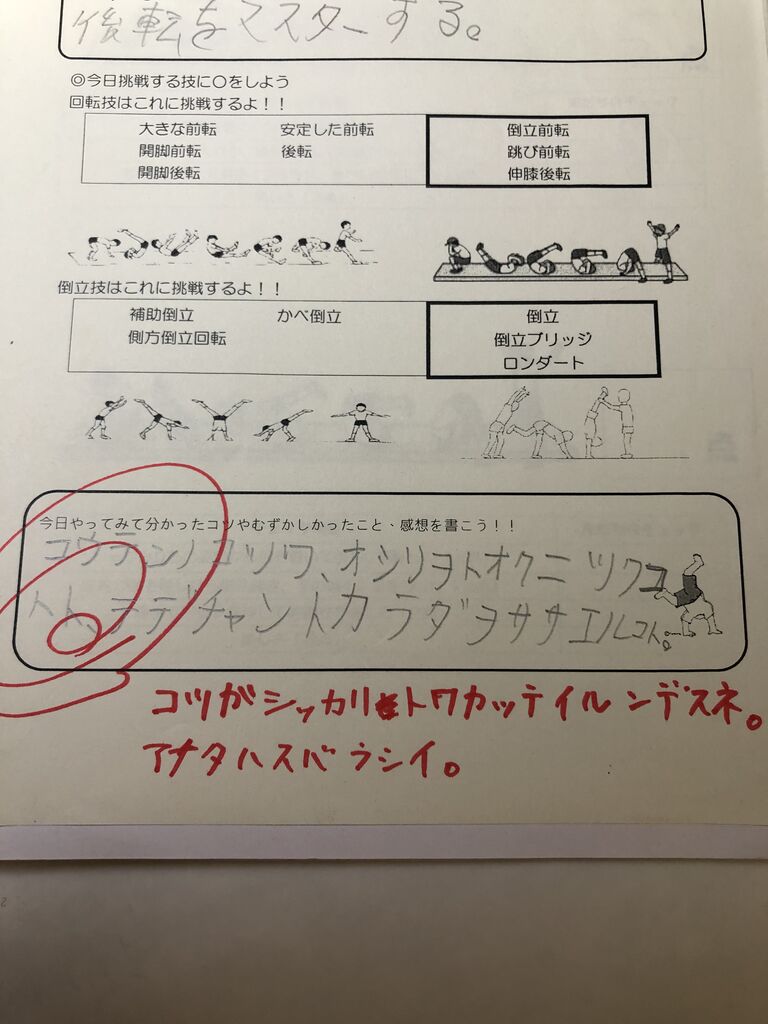 後転をマスターする。
◎今日挑戦する技に〇をしよう
回転技はこれに挑戦するよ！！
大きな前転 安定した前転
開脚前転 後転
開脚後転
倒立前転
跳び前転
伸膝後転
倒立技はこれに挑戦するよ！！
補助倒立 かべ倒立
側方倒立回転
倒立
倒立ブリッジ
ロンダート
今日やってみて分かったコツやむずかしかったこと、感想を書こう！！
コウテンノコツワ、オシリヲトオクニツクコ
トト、テデチャントカラダヲササエルコト。
コツガシッカリトワカッテイルンデスネ。
アナタハスバラシイ。